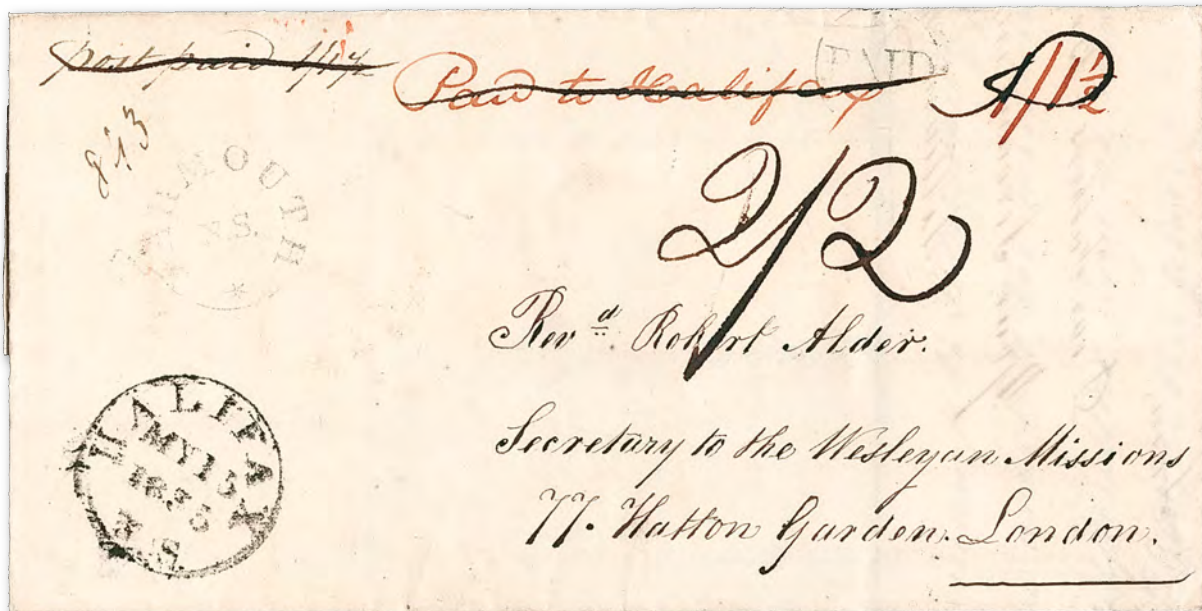 post paid 1/1½
Paid to Halifax 1/1½
PAID
YARMOUTH
N.S.
2/2
Revd. Robert Alder.
Secretary to the Wesleyan Missions
77. Hatton Garden. London.
HALIFAX
MY 15
1835
N.S.